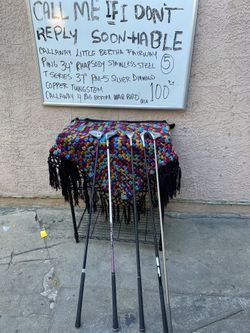 CALL ME IF I DON'T
REPLY SOON-HABLE
CALLAWAY LITTLE BERTHA FAIRWAY
PING 34" RHAPSODY STAINLESS STEEL 5
T SERIES 37" PM-5 SILVER DIAMOND
COPPER TUNGSTEM 100
CALLAWAY 4 BIG BERTHA WAR BIRD